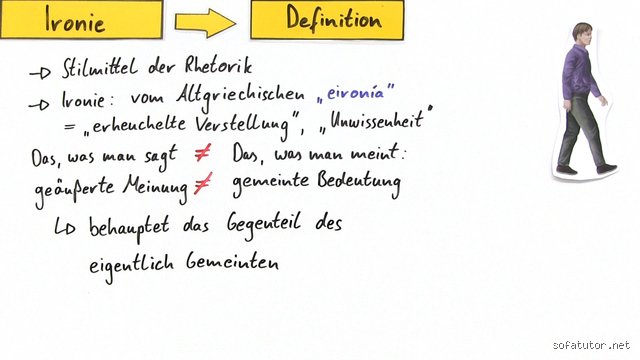 Ironie Definition
Stilmittel der Rhetorik
Ironie: vom Altgriechischen „eironía"
= „erheuchelte Verstellung", „Unwissenheit"
Das, was man sagt ≠ Das, was man meint:
geäußerte Meinung ≠ gemeinte Bedeutung
behauptet das Gegenteil des
eigentlich Gemeinten
sofatutor.net